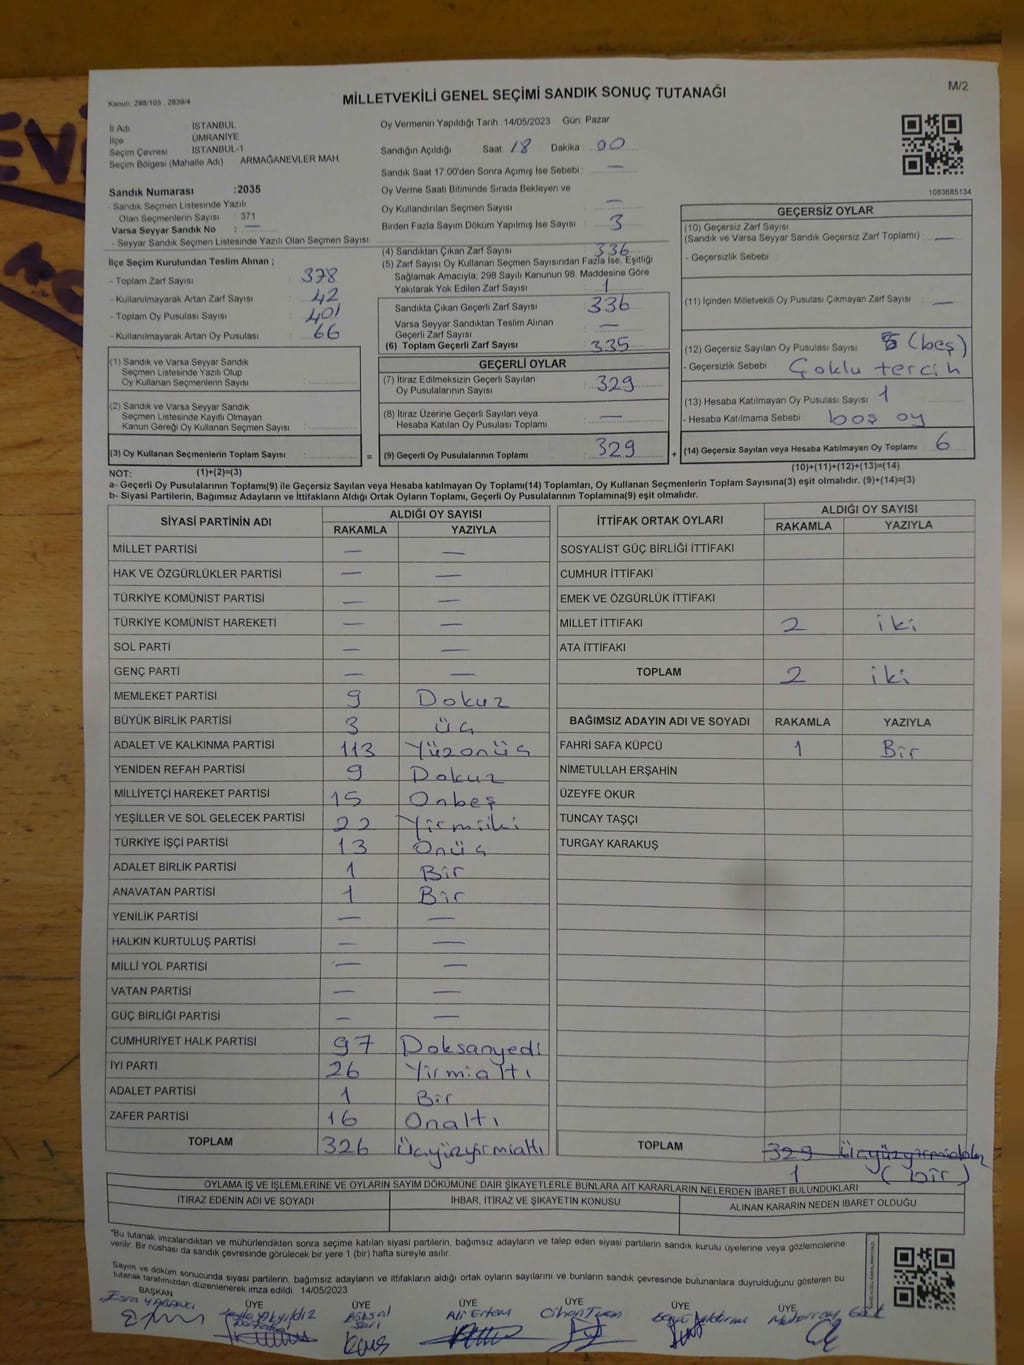 Kanun: 298/105 , 2839/4
MİLLETVEKİLİ GENEL SEÇİMİ SANDIK SONUÇ TUTANAĞI
M/2
İl Adı İSTANBUL
İlçe ÜMRANİYE
Seçim Çevresi İSTANBUL-1
Seçim Bölgesi (Mahalle Adı) : ARMAĞANEVLER MAH.
Sandık Numarası :2035
- Sandık Seçmen Listesinde Yazılı
Olan Seçmenlerin Sayısı : 371
Varsa Seyyar Sandık No : —
- Seyyar Sandık Seçmen Listesinde Yazılı Olan Seçmen Sayısı
Oy Vermenin Yapıldığı Tarih :14/05/2023 Gün: Pazar
Sandığın Açıldığı Saat: 18 Dakika : 00
Sandık Saat 17:00'den Sonra Açımış İse Sebebi : —
Oy Verme Saati Bitiminde Sırada Bekleyen ve
Oy Kullandırılan Seçmen Sayısı —
Birden Fazla Sayım Döküm Yapılmış İse Sayısı : 3
1083685134
İlçe Seçim Kurulundan Teslim Alınan ;
- Toplam Zarf Sayısı : 378
- Kullanılmayarak Artan Zarf Sayısı : 42
- Toplam Oy Pusulası Sayısı : 401
- Kullanılmayarak Artan Oy Pusulası : 66
(1) Sandık ve Varsa Seyyar Sandık
Seçmen Listesinde Yazılı Olup
Oy Kullanan Seçmenlerin Sayısı :
(2) Sandık ve Varsa Seyyar Sandık
Seçmen Listesinde Kayıtlı Olmayan
Kanun Gereği Oy Kullanan Seçmen Sayısı :
(3) Oy Kullanan Seçmenlerin Toplam Sayısı :
(4) Sandıktan Çıkan Zarf Sayısı 336
(5) Zarf Sayısı Oy Kullanan Seçmen Sayısından Fazla İse, Eşitliği
Sağlamak Amacıyla; 298 Sayılı Kanunun 98. Maddesine Göre
Yakılarak Yok Edilen Zarf Sayısı : 1
Sandıkta Çıkan Geçerli Zarf Sayısı : 336
Varsa Seyyar Sandıktan Teslim Alınan
Geçerli Zarf Sayısı : —
(6) Toplam Geçerli Zarf Sayısı : 335
GEÇERLİ OYLAR
(7) İtiraz Edilmeksizin Geçerli Sayılan
Oy Pusulalarının Sayısı : 329
(8) İtiraz Üzerine Geçerli Sayılan veya
Hesaba Katılan Oy Pusulası Toplamı : —
= (9) Geçerli Oy Pusulalarının Toplamı : 329 +
GEÇERSİZ OYLAR
(10) Geçersiz Zarf Sayısı
(Sandık ve Varsa Seyyar Sandık Geçersiz Zarf Toplamı) : —
- Geçersizlik Sebebi :
(11) İçinden Milletvekili Oy Pusulası Çıkmayan Zarf Sayısı : —
(12) Geçersiz Sayılan Oy Pusulası Sayısı : 5 (beş)
- Geçersizlik Sebebi : Çoklu tercih
(13) Hesaba Katılmayan Oy Pusulası Sayısı : 1
- Hesaba Katılmama Sebebi : boş oy
(14) Geçersiz Sayılan veya Hesaba Katılmayan Oy Toplamı : 6
NOT: (1)+(2)=(3)
(10)+(11)+(12)+(13)=(14)
a- Geçerli Oy Pusulalarının Toplamı(9) ile Geçersiz Sayılan veya Hesaba katılmayan Oy Toplamı(14) Toplamları, Oy Kullanan Seçmenlerin Toplam Sayısına(3) eşit olmalıdır. (9)+(14)=(3)
b- Siyasi Partilerin, Bağımsız Adayların ve İttifakların Aldığı Ortak Oyların Toplamı, Geçerli Oy Pusulalarının Toplamına(9) eşit olmalıdır.
SİYASİ PARTİNİN ADI ALDIĞI OY SAYISI
RAKAMLA YAZIYLA
MİLLET PARTİSİ — —
HAK VE ÖZGÜRLÜKLER PARTİSİ — —
TÜRKİYE KOMÜNİST PARTİSİ — —
TÜRKİYE KOMÜNİST HAREKETİ — —
SOL PARTİ — —
GENÇ PARTİ — —
MEMLEKET PARTİSİ 9 Dokuz
BÜYÜK BİRLİK PARTİSİ 3 üç
ADALET VE KALKINMA PARTİSİ 113 Yüzonüç
YENİDEN REFAH PARTİSİ 9 Dokuz
MİLLİYETÇİ HAREKET PARTİSİ 15 Onbeş
YEŞİLLER VE SOL GELECEK PARTİSİ 22 Yirmiiki
TÜRKİYE İŞÇİ PARTİSİ 13 Onüç
ADALET BİRLİK PARTİSİ 1 Bir
ANAVATAN PARTİSİ 1 Bir
YENİLİK PARTİSİ — —
HALKIN KURTULUŞ PARTİSİ — —
MİLLİ YOL PARTİSİ — —
VATAN PARTİSİ — —
GÜÇ BİRLİĞİ PARTİSİ — —
CUMHURİYET HALK PARTİSİ 97 Doksanyedi
İYİ PARTİ 26 Yirmialtı
ADALET PARTİSİ 1 Bir
ZAFER PARTİSİ 16 Onaltı
TOPLAM 326 Üçyüzyirmialtı
İTTİFAK ORTAK OYLARI ALDIĞI OY SAYISI
RAKAMLA YAZIYLA
SOSYALİST GÜÇ BİRLİĞİ İTTİFAKI
CUMHUR İTTİFAKI
EMEK VE ÖZGÜRLÜK İTTİFAKI
MİLLET İTTİFAKI 2 iki
ATA İTTİFAKI
TOPLAM 2 iki
BAĞIMSIZ ADAYIN ADI VE SOYADI RAKAMLA YAZIYLA
FAHRİ SAFA KÜPCÜ 1 Bir
NİMETULLAH ERŞAHİN
ÜZEYFE OKUR
TUNCAY TAŞÇI
TURGAY KARAKUŞ
TOPLAM 329
1 (bir)
OYLAMA İŞ VE İŞLEMLERİNE VE OYLARIN SAYIM DÖKÜMÜNE DAİR ŞİKAYETLERLE BUNLARA AİT KARARLARIN NELERDEN İBARET BULUNDUKLARI
İTİRAZ EDENİN ADI VE SOYADI İHBAR, İTİRAZ VE ŞİKAYETİN KONUSU ALINAN KARARIN NEDEN İBARET OLDUĞU
*Bu tutanak imzalandıktan ve mühürlendikten sonra seçime katılan siyasi partilerin, bağımsız adayların ve talep eden siyasi partilerin sandık kurulu üyelerine veya gözlemcilerine
verilir. Bir nüshası da sandık çevresinde görülecek bir yere 1 (bir) hafta süreyle asılır.
Sayım ve döküm sonucunda siyasi partilerin, bağımsız adayların ve ittifakların aldığı ortak oyların sayılarını ve bunların sandık çevresinde bulunanlara duyrulduğunu gösteren bu
tutanak tarafımızdan düzenlenerek imza edildi. 14/05/2023
BAŞKAN ÜYE ÜYE ÜYE ÜYE ÜYE ÜYE